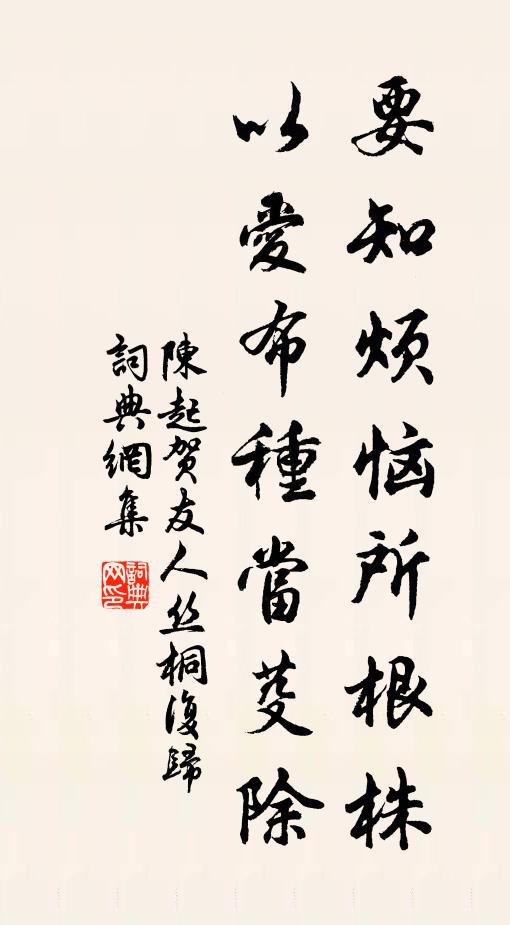 要知烦恼所根株
以愛布種當芟除
陳起贺友人丝桐復歸
詞典網集
詞典网印